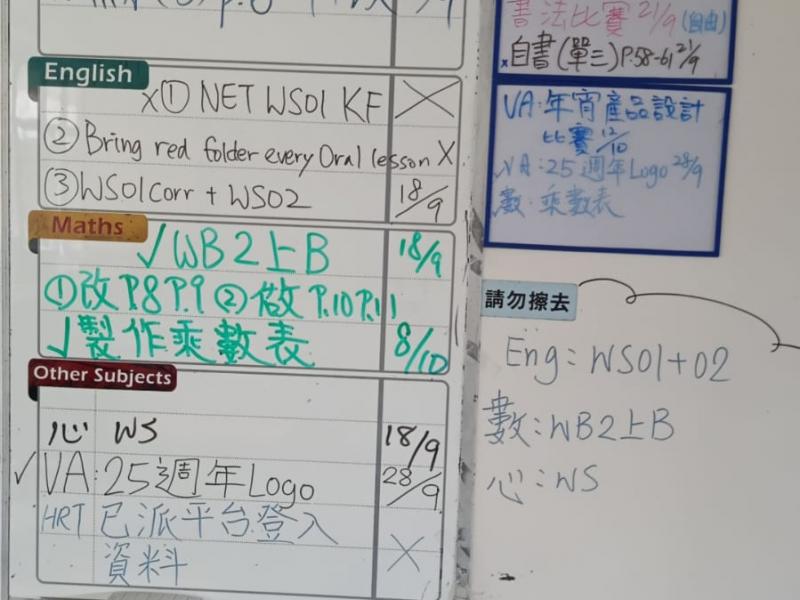 English
x① NET WS01 KF
② Bring red folder every Oral lesson X
③ WS01 Corr + WS02 18/9
Maths
✓ WB2上B 18/9
① 改 P.8 P.9 ② 做 P.10 P.11
✓ 製作乘數表 8/10
Other Subjects
心 WS 18/9
✓ VA: 25週年Logo 28/9
HRT 已派平台登入
資料 X
書法比賽 21/9 (自由)
x自書(單三) P.58-61 21/9
VA: 年宵產品設計
比賽 12/10
VA: 25週年Logo 28/9
數: 乘數表
請勿擦去
Eng: WS01+02
數: WB2上B
心: WS